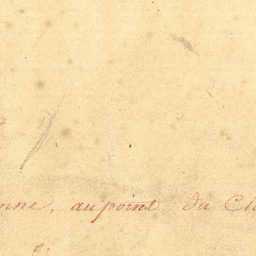 nne, au point du Cl